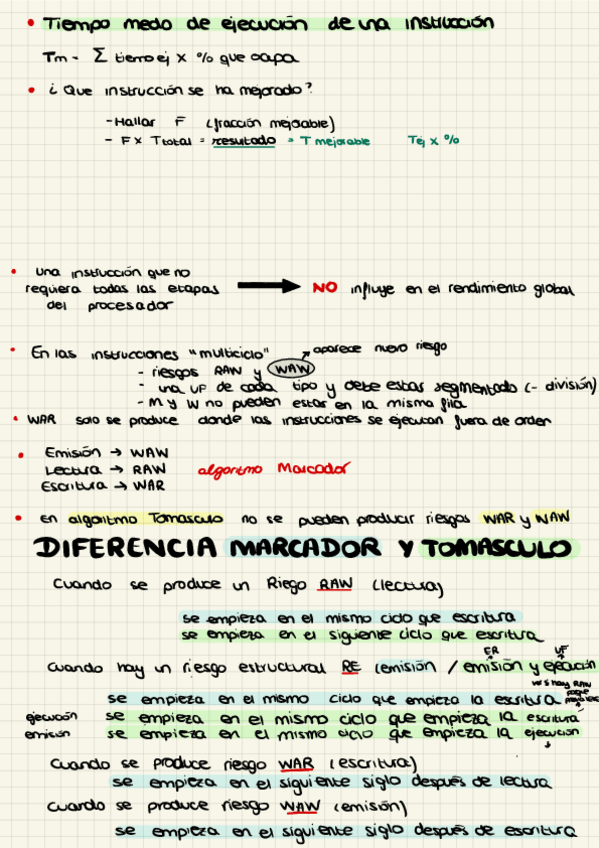 • Tiempo medo de ejecución de una instrucción
Tm = Σ tiempo ej x % que ocupa
• ¿Que instrucción se ha mejorado?
- Hallar F (fracción mejorable)
- F x Ttotal = resultado = T mejorable Tej x %
• una instrucción que no
requiera todas las etapas → NO influye en el rendimiento global
del procesador
• En las instrucciones "multiciclo" aparece nuevo riesgo
- riesgos RAW y WAW
- una UF de cada tipo y debe estar segmentado (- división)
- M y W no pueden estar en la misma fila
• WAR solo se produce donde las instrucciones se ejecutan fuera de orden
• Emisión → WAW
Lectura → RAW algoritmo Marcador
Escritura → WAR
• en algoritmo Tomasculo no se pueden producir riesgos WAR y WAW
DIFERENCIA MARCADOR Y TOMASCULO
Cuando se produce un Riego RAW (lectura)
se empieza en el mismo ciclo que escritura
se empieza en el siguiente ciclo que escritura
ER UF
Cuando hay un riesgo estructural RE (emisión / emisión y ejecución
se empieza en el mismo ciclo que empieza la escritura
ejecución se empieza en el mismo ciclo que empieza la escritura
emisión se empieza en el mismo ciclo que empieza la ejecución
Cuando se produce riesgo WAR (escritura)
se empieza en el siguiente siglo después de lectura
Cuando se produce riesgo WAW (emisión)
se empieza en el siguiente siglo después de escritura